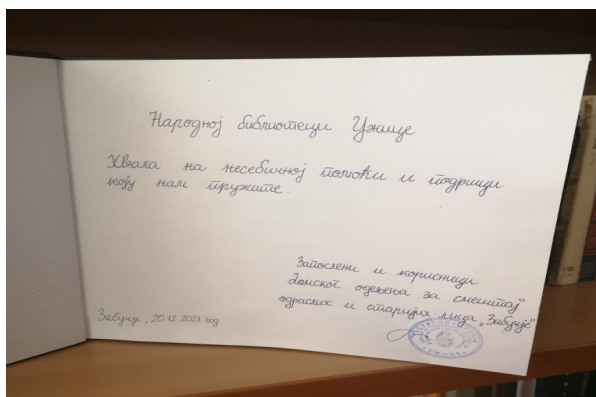 Народној библиотеци Ужице
Хвала на несебичној помоћи и подршци
коју нам пружате.
Запослени и корисници
Домског одељења за смештај
одраслих и старијих лица „Забучје“
Забучје, 20.12 2021 год